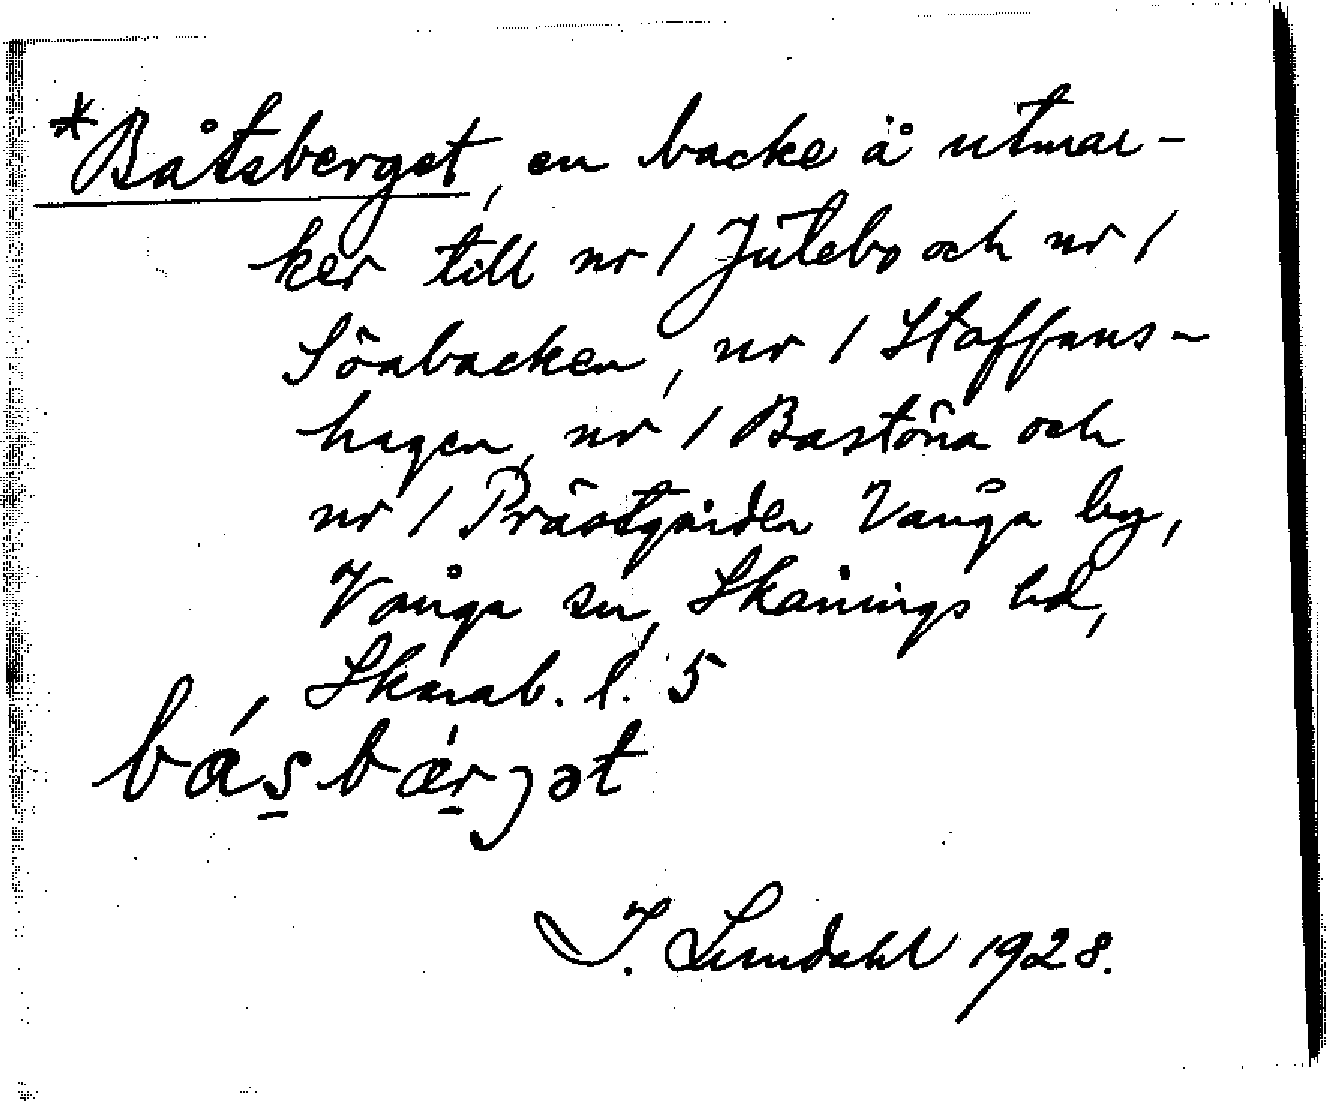 *Båtsberget, en backe å utmar-
ker till nr 1 Jutebo och nr 1
Söabacken, nr 1 Staffans-
hagen, nr 1 Bastöna och
nr 1 Prästgården Vånga by,
Vånga sn, Skånings hd,
Skarab. l. 5
básbærgət
I. Lundahl 1928.